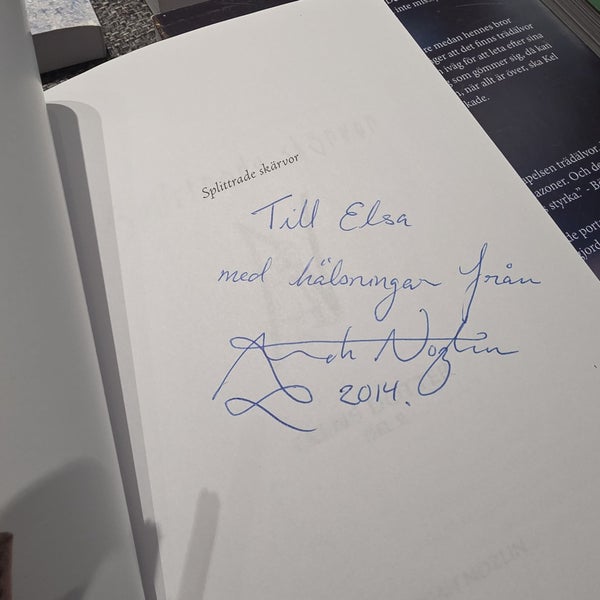 Splittrade skärvor
Till Elsa
med hälsningar från
2014.
inte
re medan hennes bror
ger att det finns trädälvor
iväg för att leta efter sina
som gömmer sig, då kan
när allt är över, ska Kel
kade.
ppelsen trädälvor
azoner. Och de
styrka." - B
de port
gjord